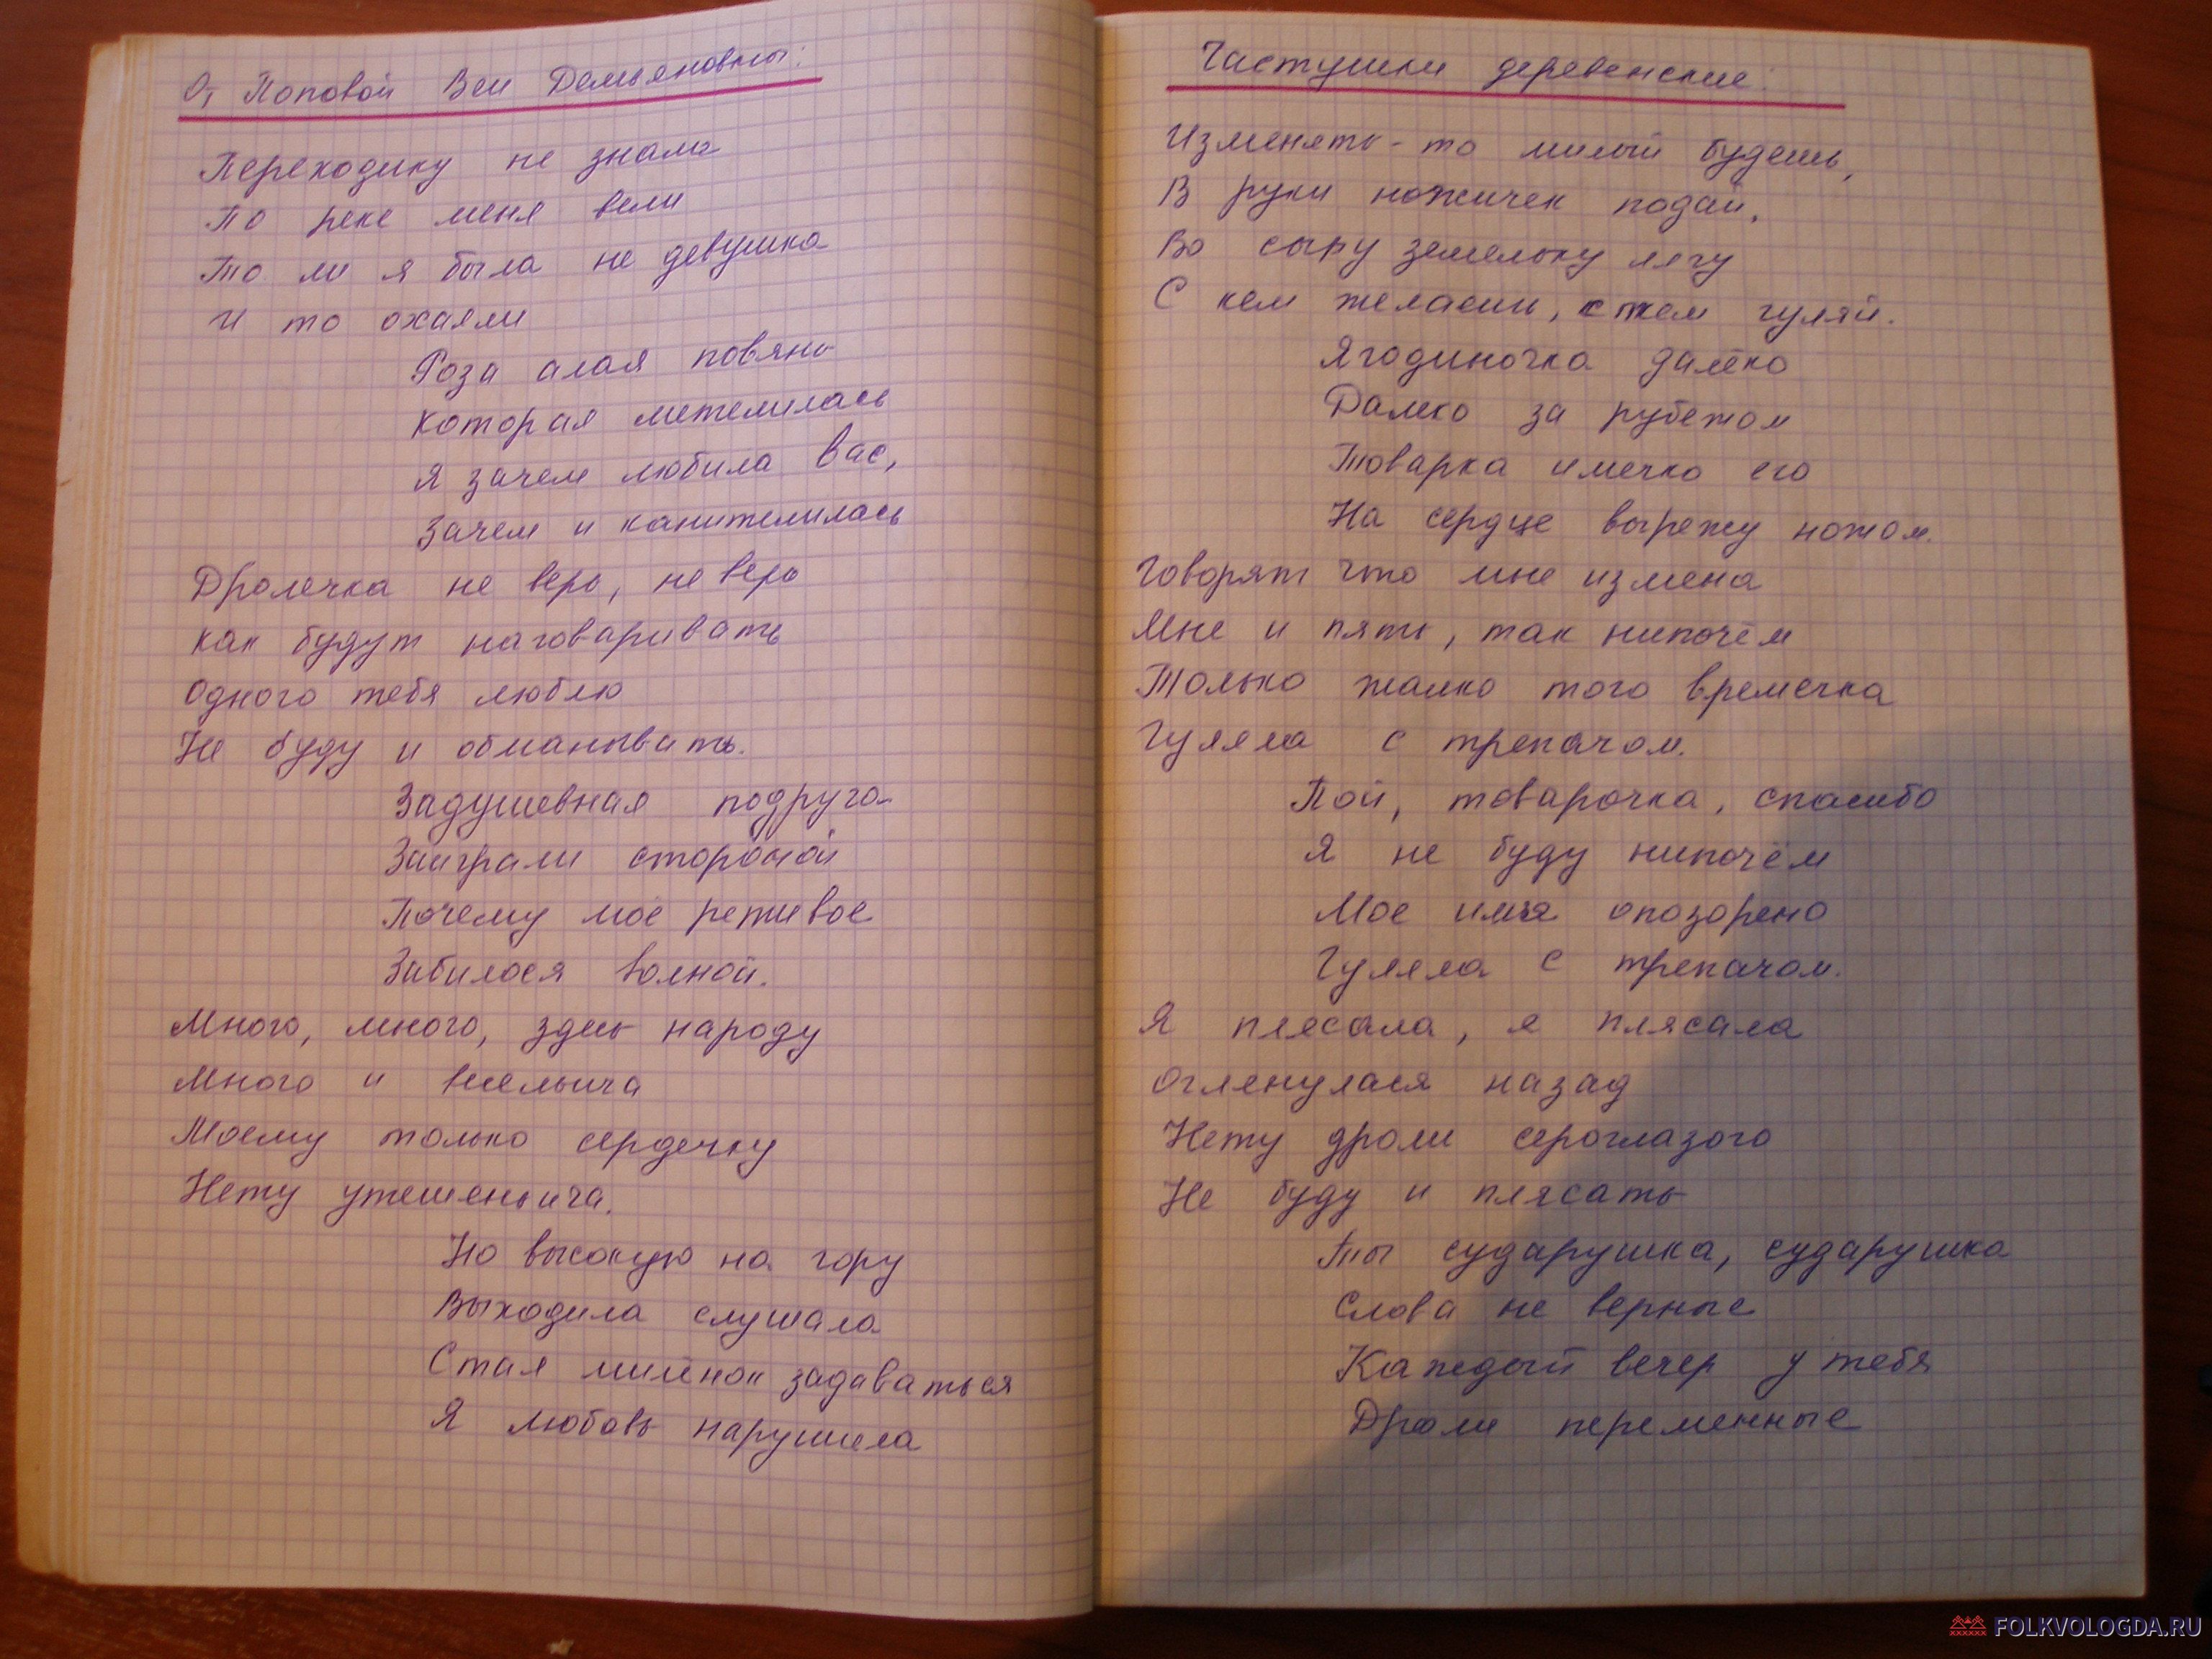 От Поповой Веи Демьяновны:
Переходику не знала
По реке меня вели
То ли я была не девушка
И то охаяли
Роза алая повянь
Которая метелилась
Я зачем любила вас,
Зачем и канителилась
Дролечка не верь, не верь
Как будут наговаривать
Одного тебя люблю
Не буду и обманывать.
Задушевная подруга
Заиграли стороной
Почему моё ретивое
Забилося волной.
Много, много, здесь народу
Много и весельича
Моему только сердечку
Нету утешеньича.
На высокую на гору
Выходила слушала
Стал милёнок задаваться
Я любовь нарушила
Частушки деревенские:
Изменять-то милый будешь,
В руки ножичек подай,
Во сыру земельку лягу
С кем желаешь, с тем гуляй.
Ягодиночка далёко
Далеко за рубежом
Товарка имечко его
На сердце вырежу ножом.
Говорят что мне измена
Мне и пять, так нипочём
Только жалко того времечка
Гуляла с трепачом.
Пой, товарочка, спасибо
Я не буду нипочём
Мое имя опозорено
Гуляла с трепачом.
Я плясала, я плясала
Огленулася назад
Нету дроли сероглазого
Не буду и плясать
Ты сударушка, сударушка
Слова не верные
Каждый вечер у тебя
Дроли переменные
FOLKVOLOGDA.RU